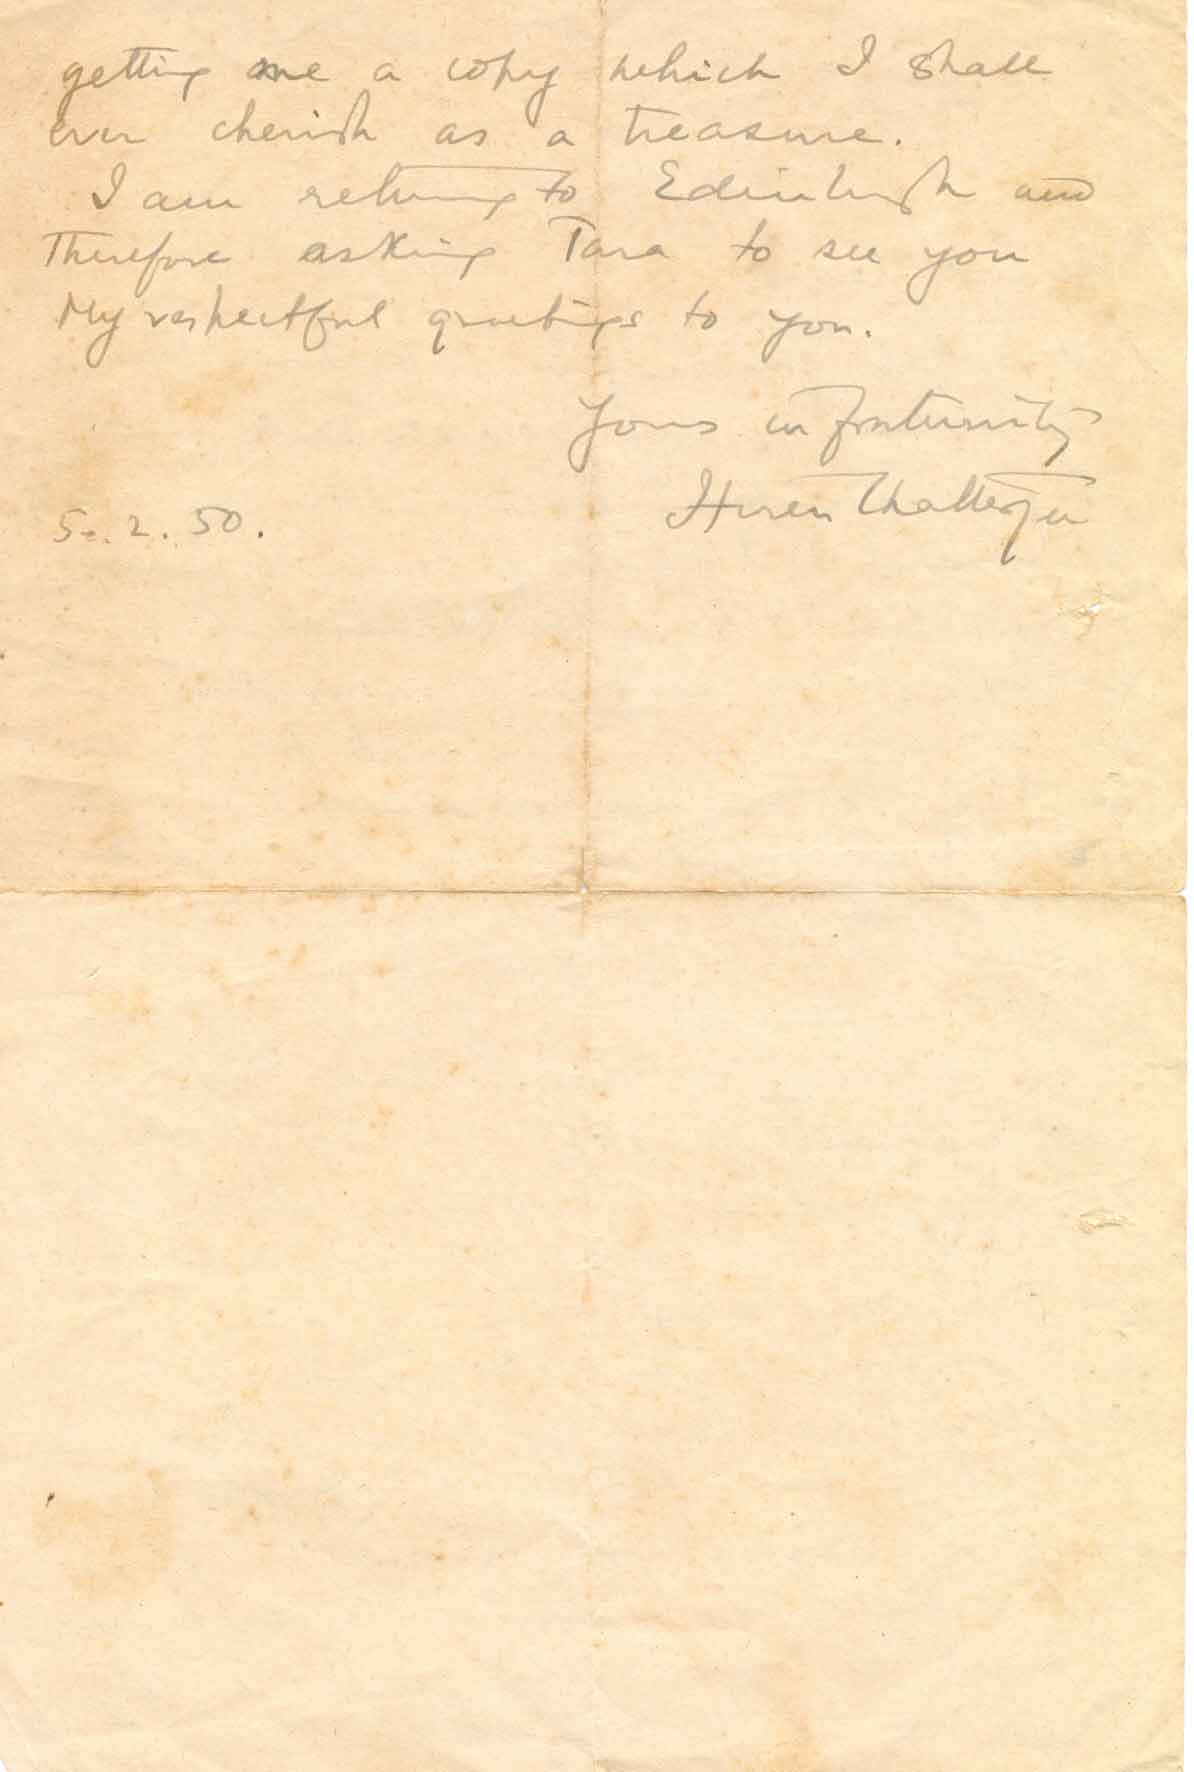 getting me a copy which I shall
ever cherish as a treasure.
I am returning to Edinburgh and
therefore asking Tara to see you
My respectful greetings to you.
Yours in fraternity
Hiren Chatterjee
2. 50.